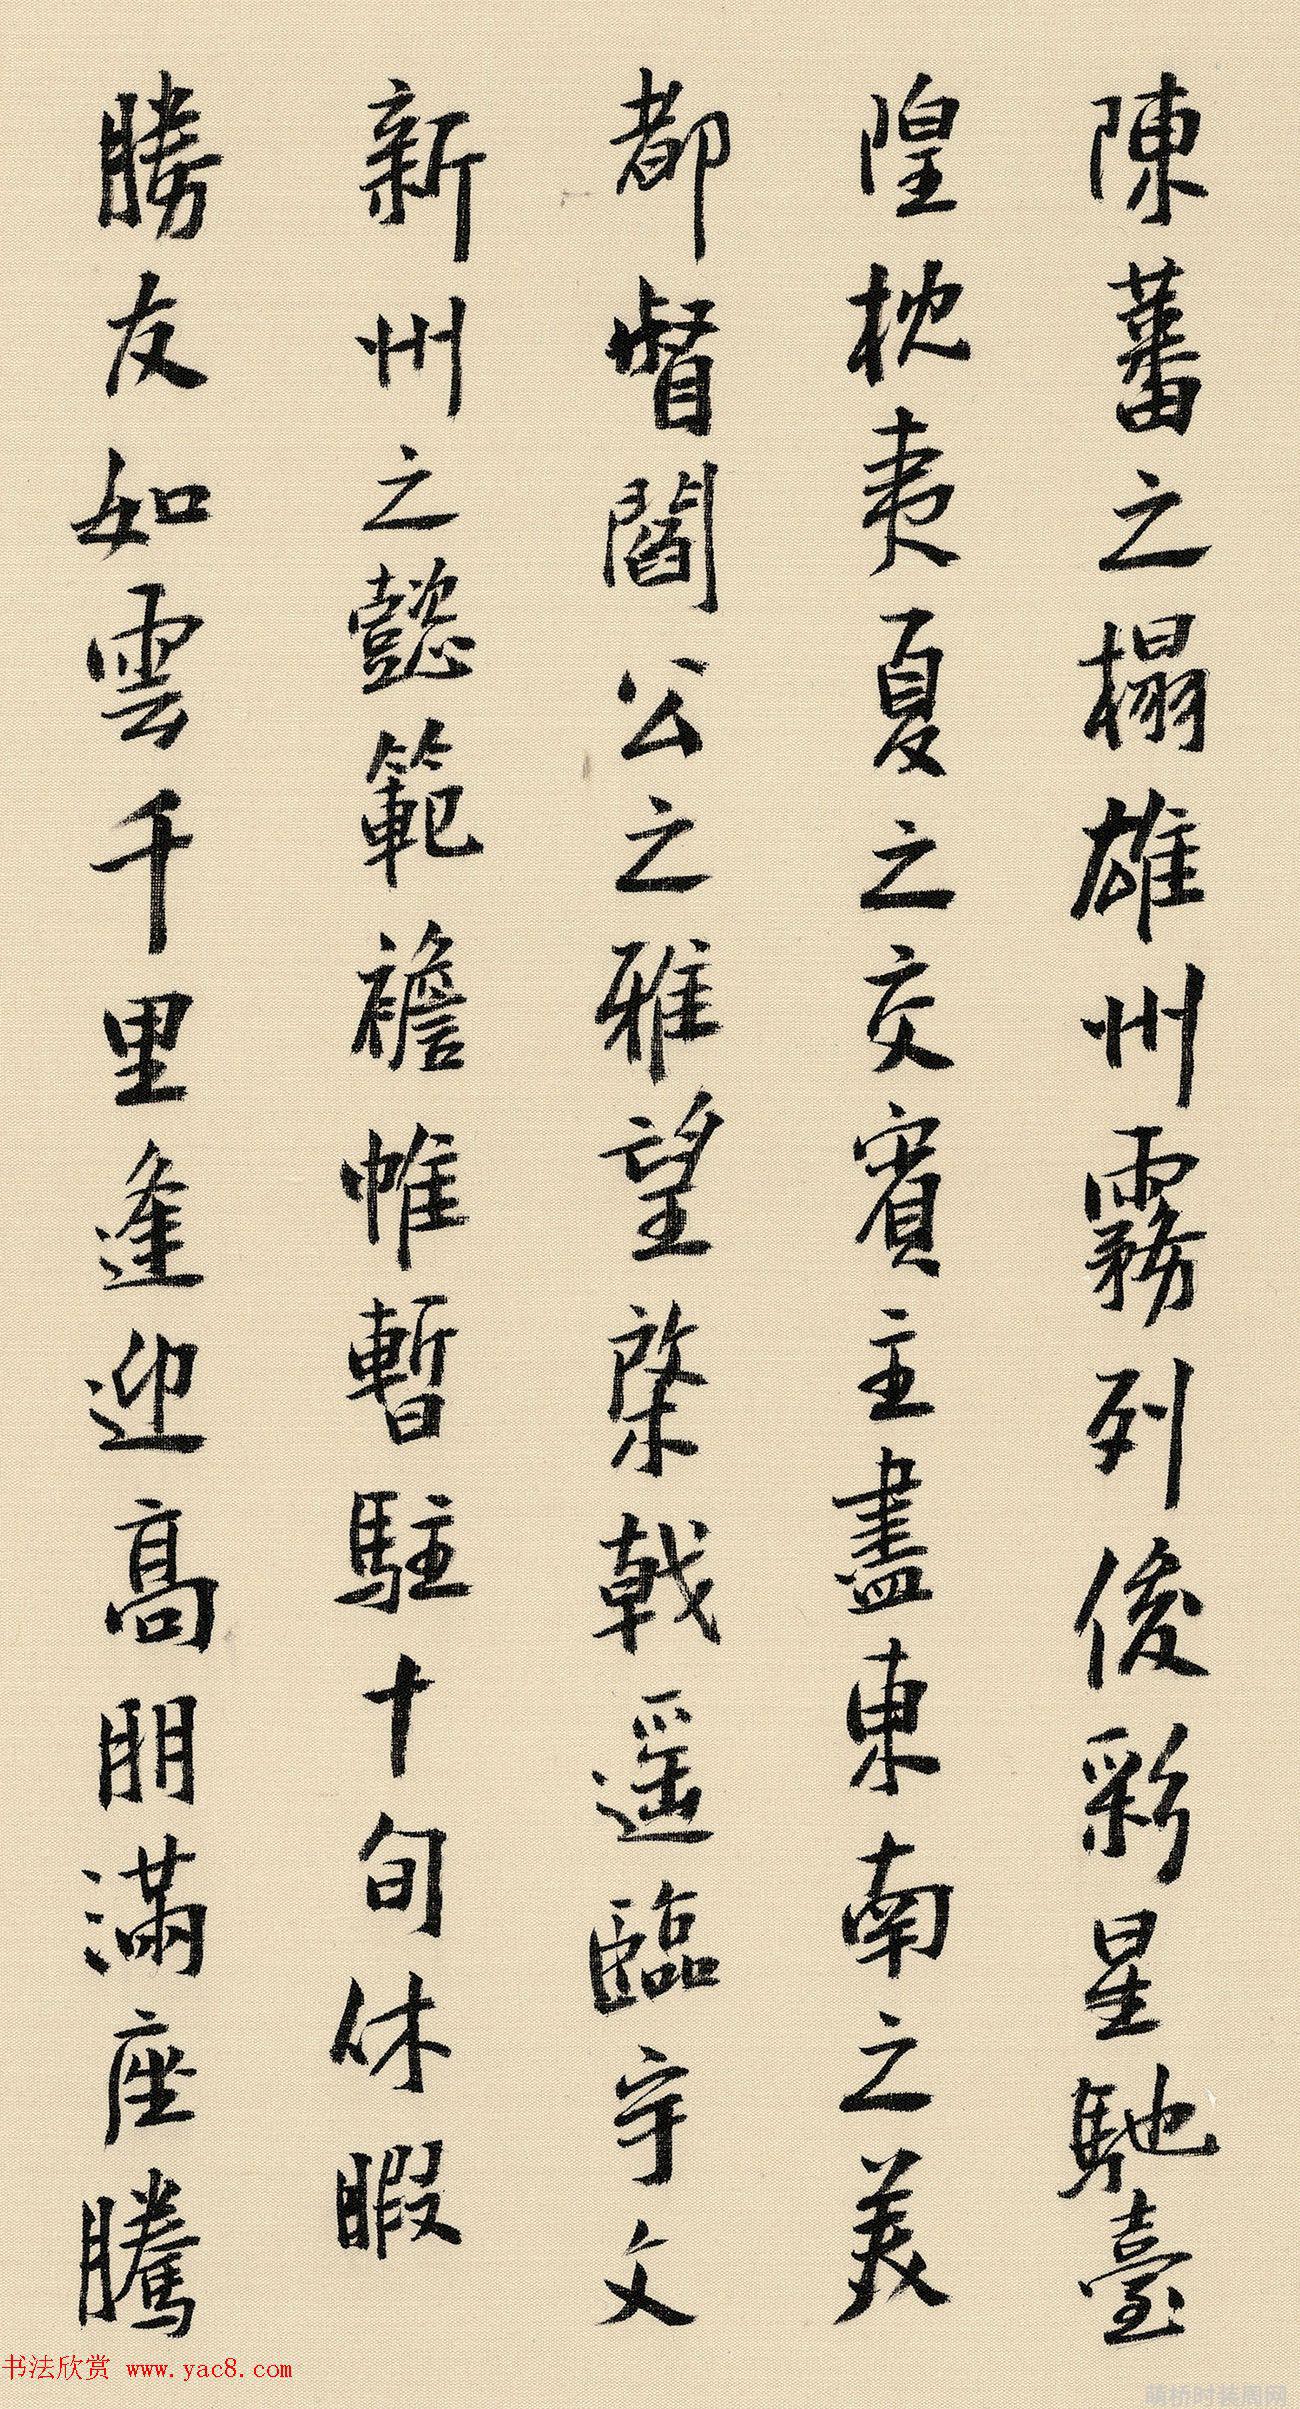 陳蕃之榻雄州霧列俊彩星馳臺
隍枕夷夏之交賓主盡東南之美
都督閻公之雅望棨戟遥臨宇文
新州之懿範襜帷暫駐十旬休暇
勝友如雲千里逢迎高朋滿座騰
书法欣赏 www.yac8.com
萌桥时装周网